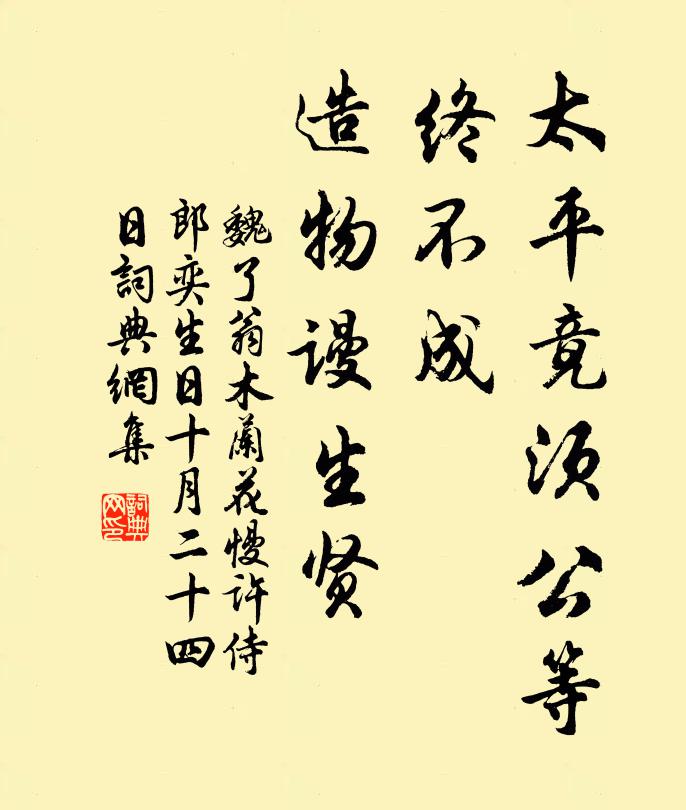 太平竟须公等
终不成
造物謾生贤
魏了翁木蘭花慢許侍
郎奕生日十月二十四
日詞典網集
詞典
网印